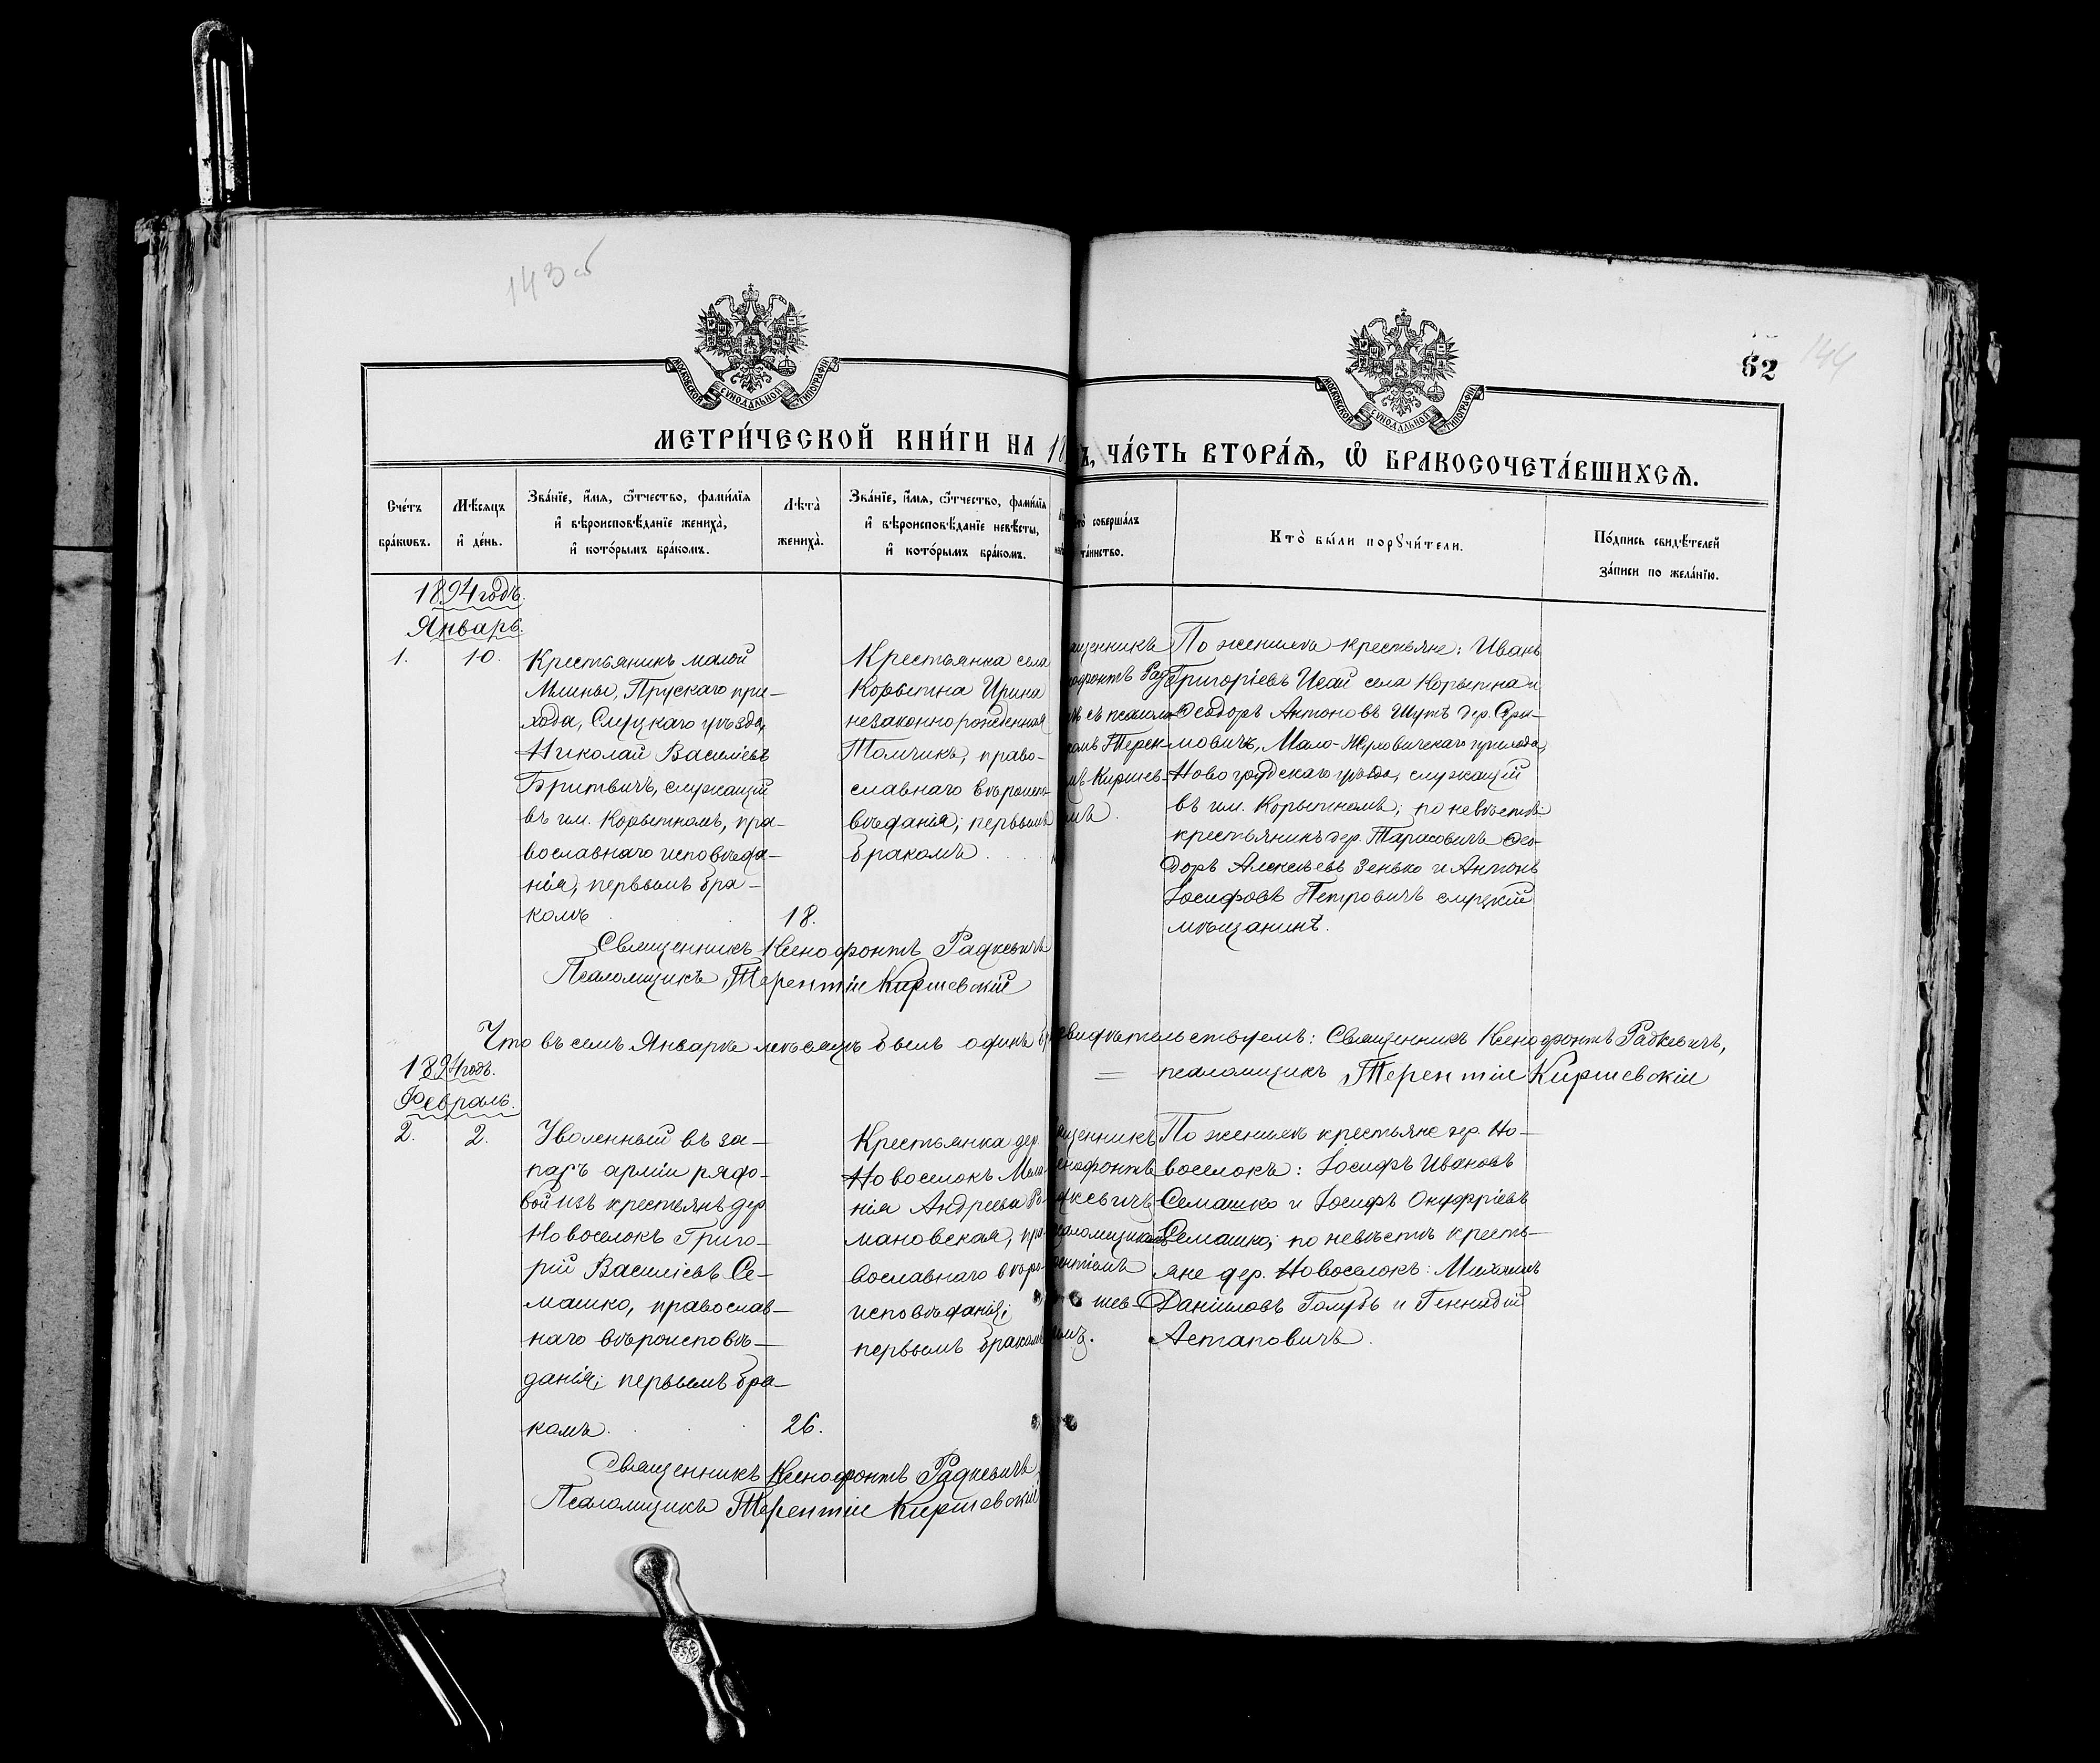 143 об
144
62
МОСКОВСКОЙ СУНОДАЛЬНОЙ ТИПОГРАФІИ
МОСКОВСКОЙ СУНОДАЛЬНОЙ ТИПОГРАФІИ
МЕТРИ́ЧЕСКОЙ КНИ́ГИ НА 18
Ъ, ЧА́СТЬ ВТОРА́Ѧ, Ѡ БРАКОСОЧЕТА́ВШИХСѦ.
Сче́тъ
бра́кѡвъ.
Мѣ́сѧцъ
и҆ де́нь.
Зва́нїе, и҆́мѧ, ѻ҆́тчество, фами́лїѧ
и҆ вѣроисповѣ́данїе жениха̀,
и҆ кото́рымъ бра́комъ.
Лѣта̀
жениха̀.
Зва́нїе, и҆́мѧ, ѻ҆́тчество, фами́лїѧ
и҆ вѣроисповѣ́данїе невѣ́сты,
и҆ кото́рымъ бра́комъ.
то̀ соверша́лъ
та́инство.
Кто̀ бы́ли порꙋчи́тели.
По́дпись свидѣ́телей
за́писи по жела́нїю.
1894 годъ.
Январь.
1.
10.
Крестьянникъ малой
Млины, Прускаго при-
хода, Слуцкаго уѣзда,
Николай Василіевъ
Бритвичъ, служащій
въ им. Корытномъ, пра-
вославнаго исповѣда-
нія, первымъ бра-
комъ
18.
Крестьянка села
Корытна Ирина
незаконнорожденная
Томчикъ, право-
славнаго вѣроиспо-
вѣданія; первымъ
бракомъ
ященникъ
нофонтъ Рад
чъ съ псалом
комъ Терен
мъ Киршев
мъ.
По женихѣ крестьяне: Иванъ
Григоріевъ Исай села Корытна и
Ѳеодоръ Антоновъ Шутъ дер.
мовичъ, Мало-Жуховичскаго прихода,
Новогрудскаго уѣзда, служащій
въ им. Корытномъ; по невѣстѣ:
крестьянинъ дер. Тарасовичъ Ѳео-
доръ Алексѣевъ Зенько и Антонъ
Іосифовъ Петровичъ слуцкій
мѣщанинъ.
Священникъ Ксенофонтъ Радкевичъ
Псаломщикъ Терентій Киршевскій
Что въ семъ Январѣ мѣсяцѣ былъ одинъ бр
свидѣтельствуемъ: Священникъ Ксенофонтъ Радкевичъ,
= псаломщикъ Терентій Киршевскій
1894 годъ.
Февраль.
2.
2.
Уволенный въ за-
пасъ арміи рядо-
вой изъ крестьянъ дер.
Новоселокъ Григо-
рій Василіевъ Се-
машко, православ-
наго вѣроисповѣ-
данія; первымъ бра-
комъ.
26.
Крестьянка дер.
Новоселокъ Мела
нія Андреева Ро-
мановская, пра-
вославнаго вѣро-
исповѣданія;
первымъ бракомъ
ященникъ
енофонтъ
дкевичъ
саломщикомъ
рентіемъ
шев-
кимъ.
По женихѣ крестьяне дер. Но-
воселокъ: Іосифъ Ивановъ
Семашко и Іосифъ Онуфріевъ
Семашко; по невѣстѣ кресть-
яне дер. Новоселокъ: Михаилъ
Даніиловъ Голубъ и Геннадій
Астаповичъ.
Священникъ Ксенофонтъ Радкевичъ
Псаломщикъ Терентій Киршевскій